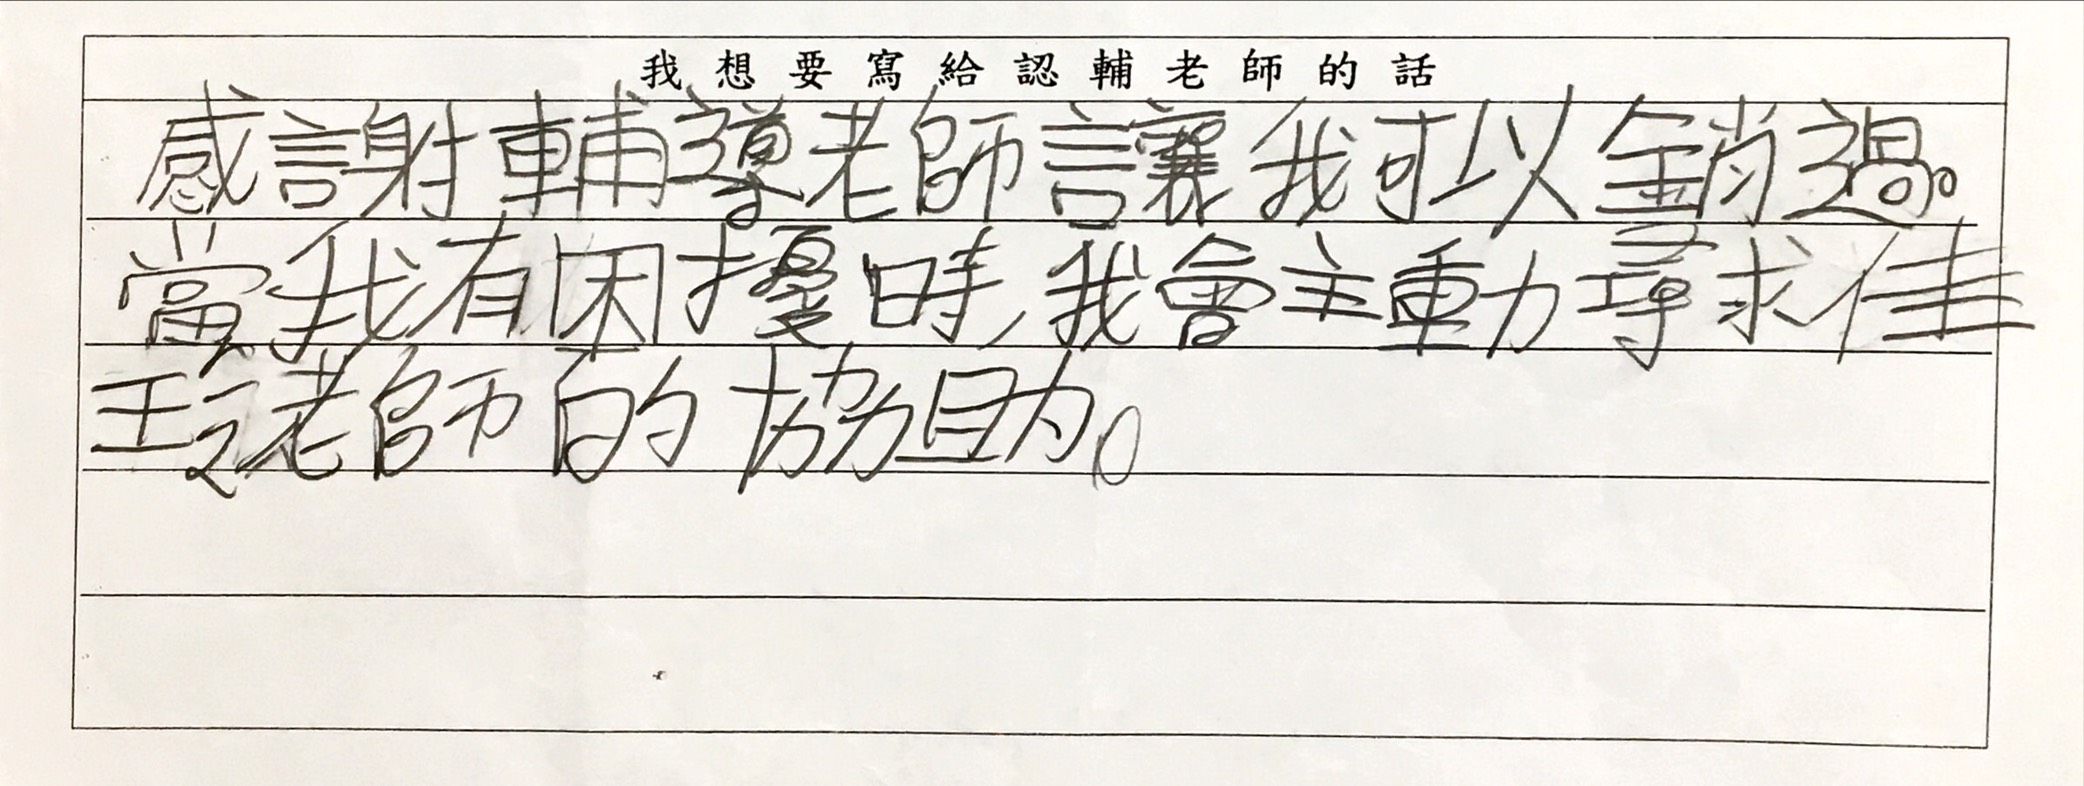 我想要寫給認輔老師的話
感謝輔導老師讓我可以銷過。
當我有困擾時,我會主動尋求佳
玲老師的協助。